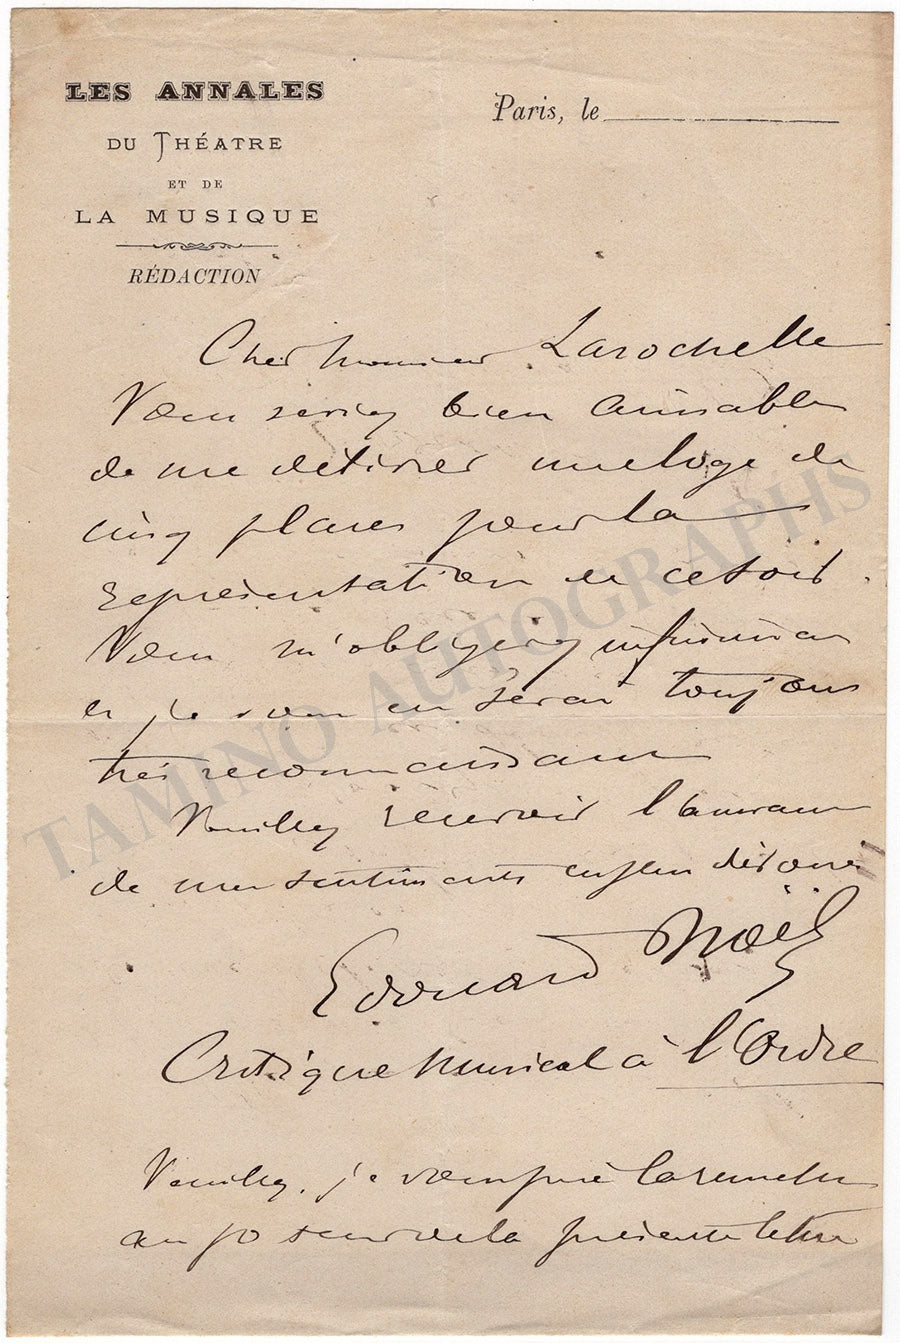 LES ANNALES
DU THÉATRE
ET DE
LA MUSIQUE
RÉDACTION
Paris, le
Cher Monsieur Larochelle
Vous seriez bien aimable
de me délivrer une loge de
cinq places pour la
représentation de ce soir.
Vous m'obligerez infiniment
et je vous en serai toujours
très reconnaissant
Veuillez recevoir l'assurance
de mes sentiments dévoués
Edouard Noël
Critique Musical à l'Ordre
Veuillez, je vous prie la remettre
au porteur de la présente lettre
TAMINO AUTOGRAPHS